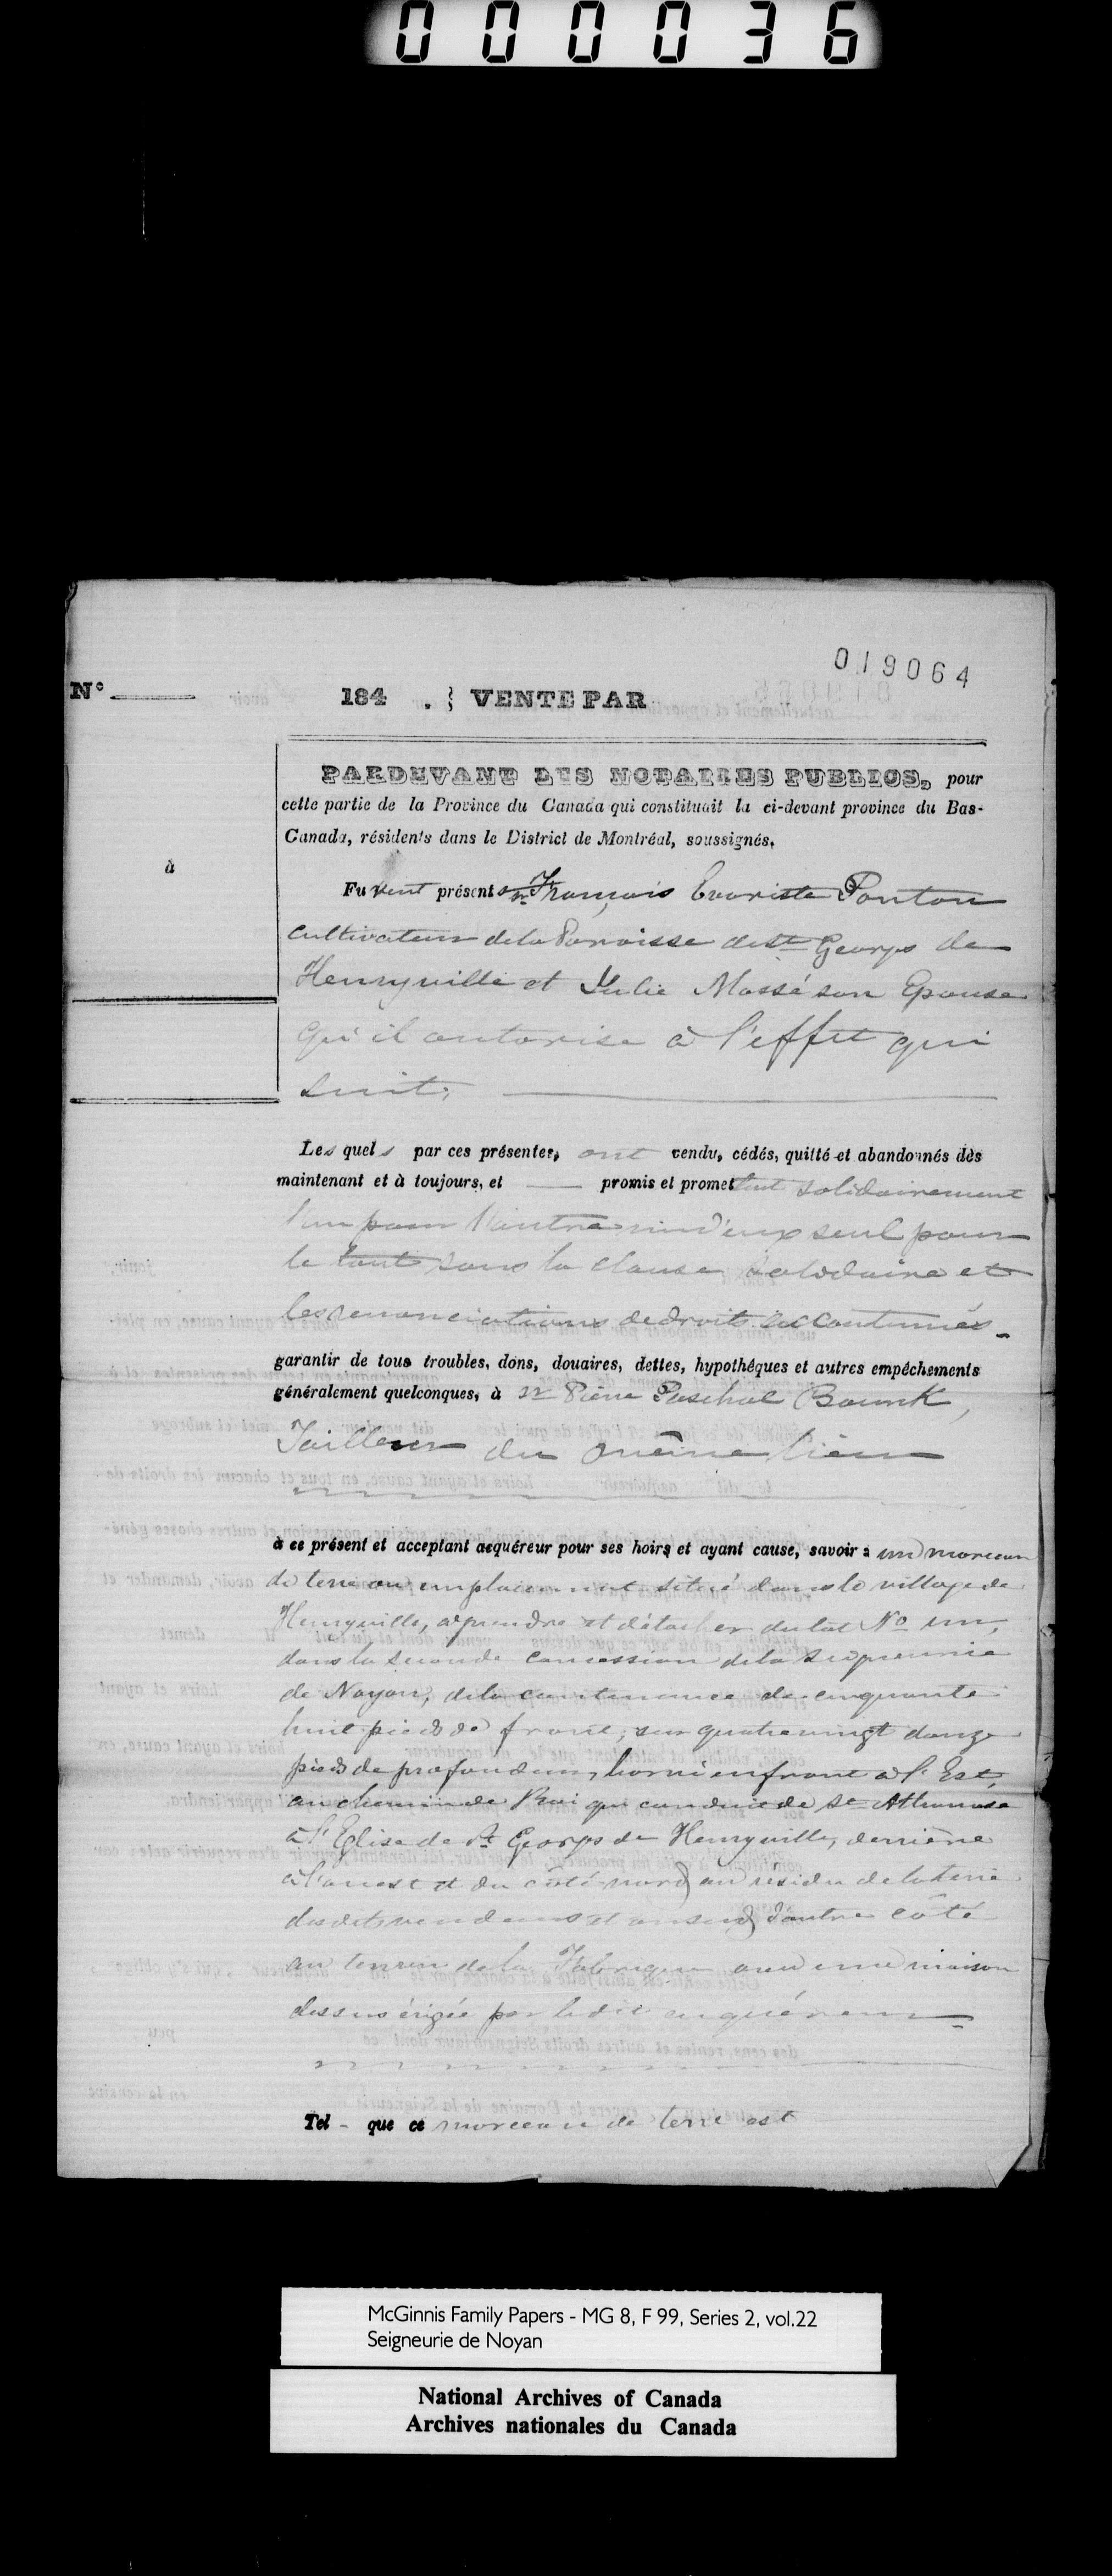 000036
019064
N° 184 . } VENTE PAR
PARDEVANT LES NOTAIRES PUBLICS, pour
cette partie de la Province du Canada qui constituait la ci-devant province du Bas-
Canada, résidents dans le District de Montréal, soussignés,
à
Furent présents Sr. François Evariste Ponton
cultivateur de la Paroisse de St Georges de
Henryville et Julie Massé son Epouse
qu'il autorise à l'effet qui
suit,
Lesquels par ces présentes, ont vendu, cédés, quitté et abandonnés dès
maintenant et à toujours, et promis et promettent solidairement
l'un pour l'autre un d'eux seul pour
le tout sous la clause solidaire et
les renonciations de droits accoutumés
garantir de tous troubles, dons, douaires, dettes, hypothéques et autres empêchements
généralement quelconques, à Sr Pierre Paschal Bourk,
Tailleur du même lieu
à ce présent et acceptant acquéreur pour ses hoirs et ayant cause, savoir : un morceau
de terre ou emplacement situé dans le village de
Henryville, à prendre et détacher du lot No un,
dans la seconde concession de la Seigneurie
de Noyan, de la contenance de cinquante
huit pieds de front, sur quatre vingt douze
pieds de profondeur, borné en front à l'Est,
au chemin de Roi qui conduit de St Athanase
à l'Eglise de St Georges de Henryville, derrière
à l'ouest et du côté nord au résidu de la terre
des dits vendeurs et au sud d'autre côté
au terrein de la Fabrique avec une maison
dessus érigée par le dit acquéreur
Tel - que ce morceau de terre est
McGinnis Family Papers - MG 8, F 99, Series 2, vol.22
Seigneurie de Noyan
National Archives of Canada
Archives nationales du Canada